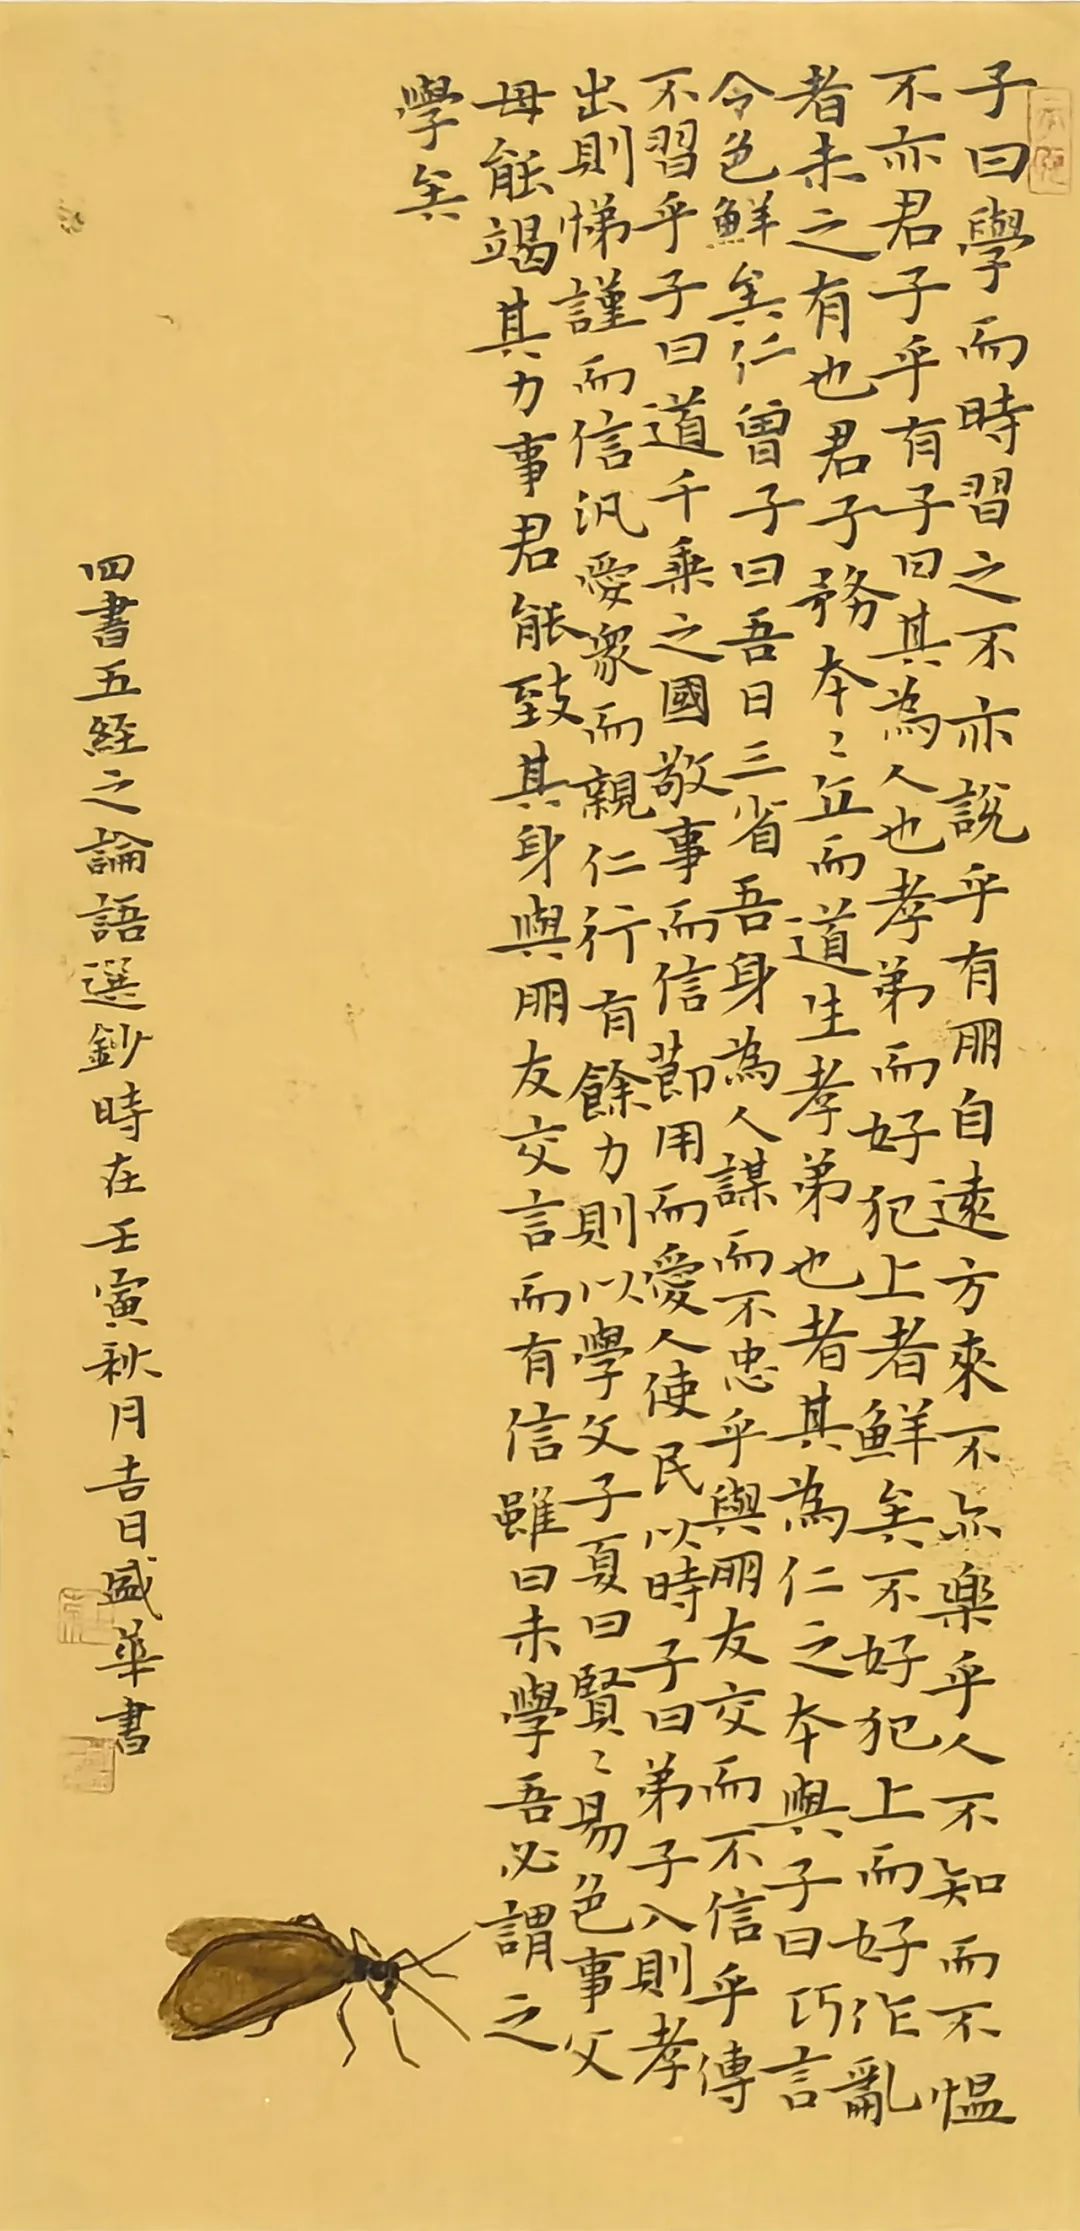 子曰學而時習之不亦說乎有朋自遠方來不亦樂乎人不知而不愠
不亦君子乎有子曰其為人也孝弟而好犯上者鮮矣不好犯上而好作亂
者未之有也君子務本〻立而道生孝弟也者其為仁之本與子曰巧言
令色鮮矣仁曾子曰吾日三省吾身為人謀而不忠乎與朋友交而不信乎傳
不習乎子曰道千乘之國敬事而信節用而愛人使民以時子曰弟子入則孝
出則悌謹而信汎愛衆而親仁行有餘力則以學文子夏曰賢〻易色事父
母能竭其力事君能致其身與朋友交言而有信雖曰未學吾必謂之
學矣
四書五經之論語選鈔時在壬寅秋月吉日盛華書